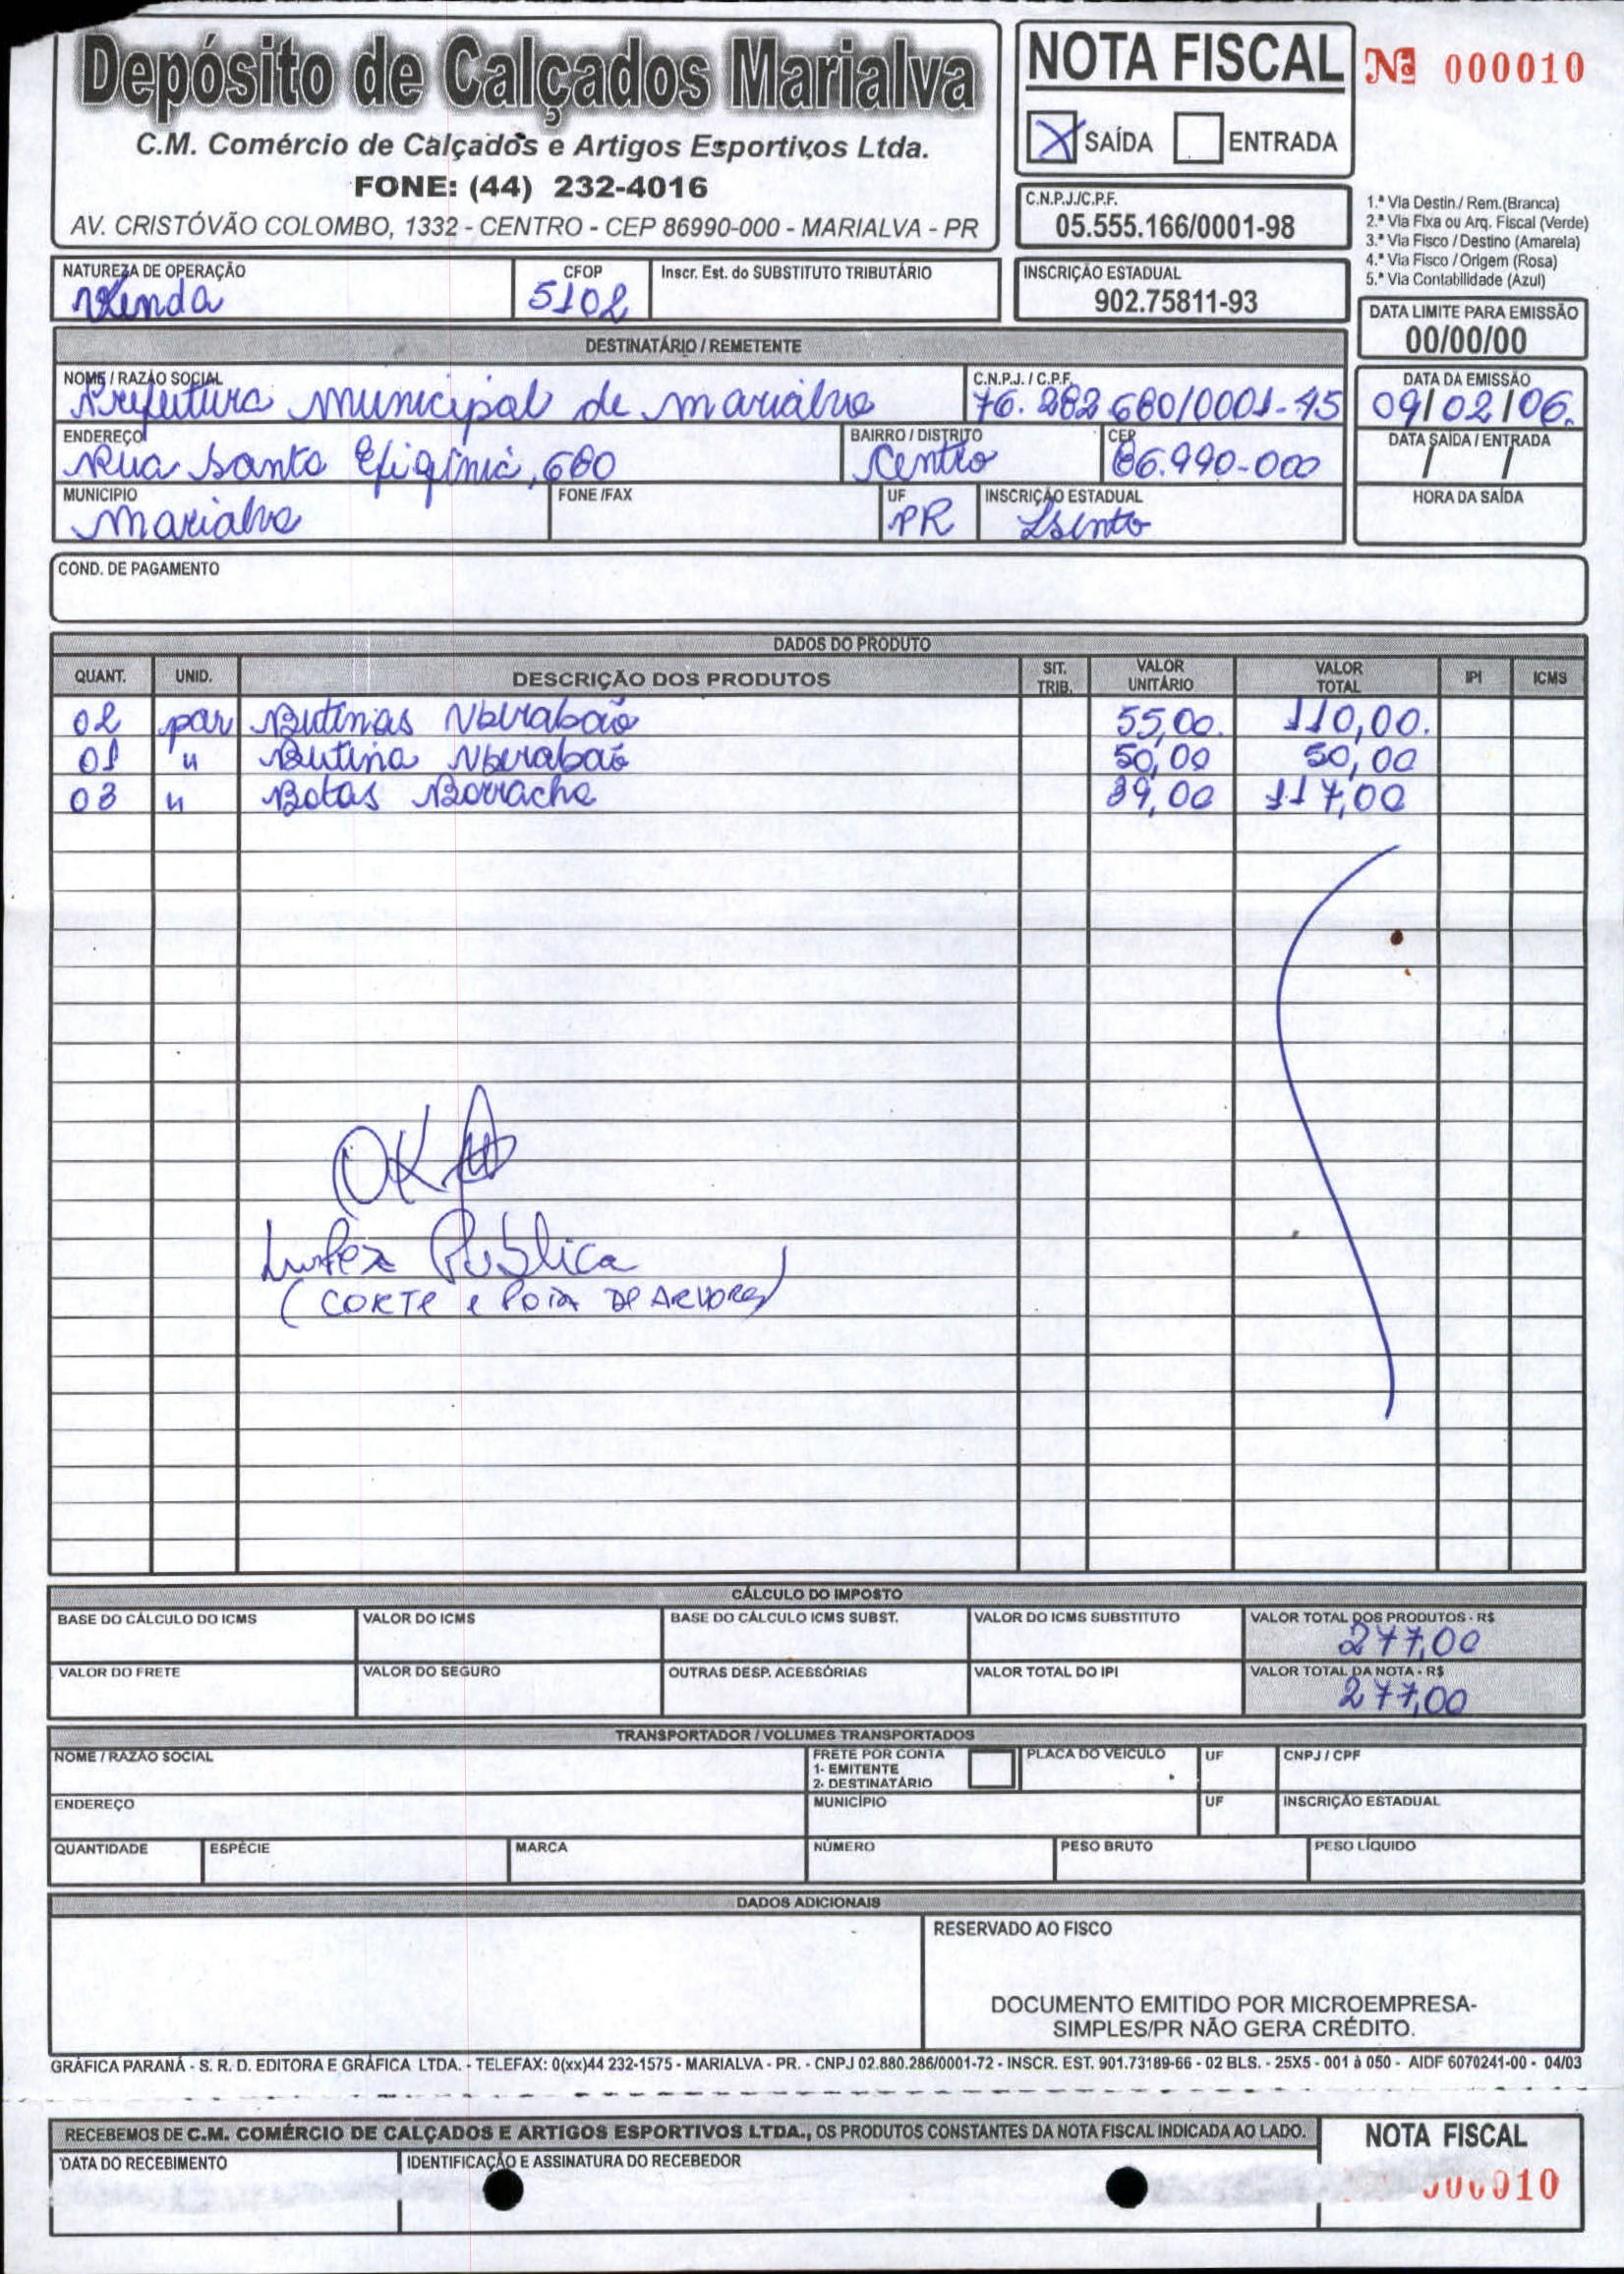 Depósito de Calçados Marialva
C.M. Comércio de Calçados e Artigos Esportivos Ltda.
FONE: (44) 232-4016
AV. CRISTÓVÃO COLOMBO, 1332 - CENTRO - CEP 86990-000 - MARIALVA - PR
NOTA FISCAL
Nº 000010
X SAÍDA ENTRADA
C.N.P.J./C.P.F.
05.555.166/0001-98
1.ª Via Destin./ Rem.(Branca)
2.ª Via Fixa ou Arq. Fiscal (Verde)
3.ª Via Fisco / Destino (Amarela)
4.ª Via Fisco / Origem (Rosa)
5.ª Via Contabilidade (Azul)
NATUREZA DE OPERAÇÃO
Venda
CFOP
5102
Inscr. Est. do SUBSTITUTO TRIBUTÁRIO
INSCRIÇÃO ESTADUAL
902.75811-93
DATA LIMITE PARA EMISSÃO
00/00/00
DESTINATÁRIO / REMETENTE
NOME / RAZÃO SOCIAL
Prefeitura Municipal de Marialva
C.N.P.J. / C.P.F.
76.282.680/0001-45
DATA DA EMISSÃO
09/02/06.
ENDEREÇO
Rua Santa Efigênia, 680
BAIRRO / DISTRITO
Centro
CEP
86.990-000
DATA SAÍDA / ENTRADA
/ /
MUNICIPIO
Marialva
FONE /FAX
UF
PR
INSCRIÇÃO ESTADUAL
Isento
HORA DA SAÍDA
COND. DE PAGAMENTO
DADOS DO PRODUTO
QUANT. UNID. DESCRIÇÃO DOS PRODUTOS SIT. TRIB. VALOR UNITÁRIO VALOR TOTAL IPI ICMS
02 par Butinas 55,00. 110,00.
01 " Butina 50,00 50,00
03 " Botas Borracha 39,00 117,00
OK
Pública
(CORTE e PODA DE ARVORES)
CÁLCULO DO IMPOSTO
BASE DO CÁLCULO DO ICMS VALOR DO ICMS BASE DO CÁLCULO ICMS SUBST. VALOR DO ICMS SUBSTITUTO VALOR TOTAL DOS PRODUTOS - R$
277,00
VALOR DO FRETE VALOR DO SEGURO OUTRAS DESP. ACESSÓRIAS VALOR TOTAL DO IPI VALOR TOTAL DA NOTA - R$
277,00
TRANSPORTADOR / VOLUMES TRANSPORTADOS
NOME / RAZÃO SOCIAL
FRETE POR CONTA
1- EMITENTE
2- DESTINATÁRIO
PLACA DO VEÍCULO UF CNPJ / CPF
ENDEREÇO MUNICÍPIO UF INSCRIÇÃO ESTADUAL
QUANTIDADE ESPÉCIE MARCA NÚMERO PESO BRUTO PESO LÍQUIDO
DADOS ADICIONAIS
RESERVADO AO FISCO
DOCUMENTO EMITIDO POR MICROEMPRESA-
SIMPLES/PR NÃO GERA CRÉDITO.
GRÁFICA PARANÁ - S. R. D. EDITORA E GRÁFICA LTDA. - TELEFAX: 0(xx)44 232-1575 - MARIALVA - PR. - CNPJ 02.880.286/0001-72 - INSCR. EST. 901.73189-66 - 02 BLS. - 25X5 - 001 à 050 - AIDF 6070241-00 - 04/03
RECEBEMOS DE C.M. COMÉRCIO DE CALÇADOS E ARTIGOS ESPORTIVOS LTDA., OS PRODUTOS CONSTANTES DA NOTA FISCAL INDICADA AO LADO.
NOTA FISCAL
DATA DO RECEBIMENTO IDENTIFICAÇÃO E ASSINATURA DO RECEBEDOR
000010